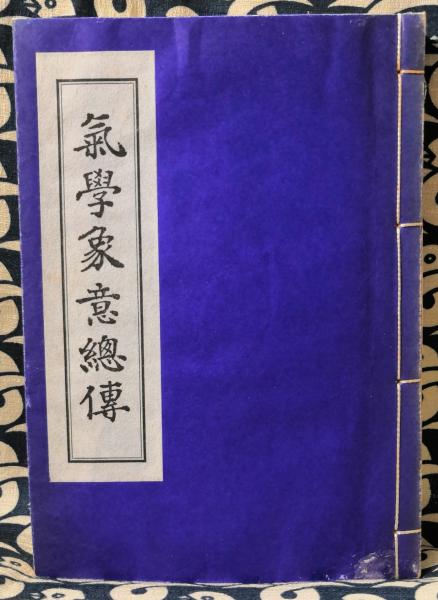 氣學象意總傳